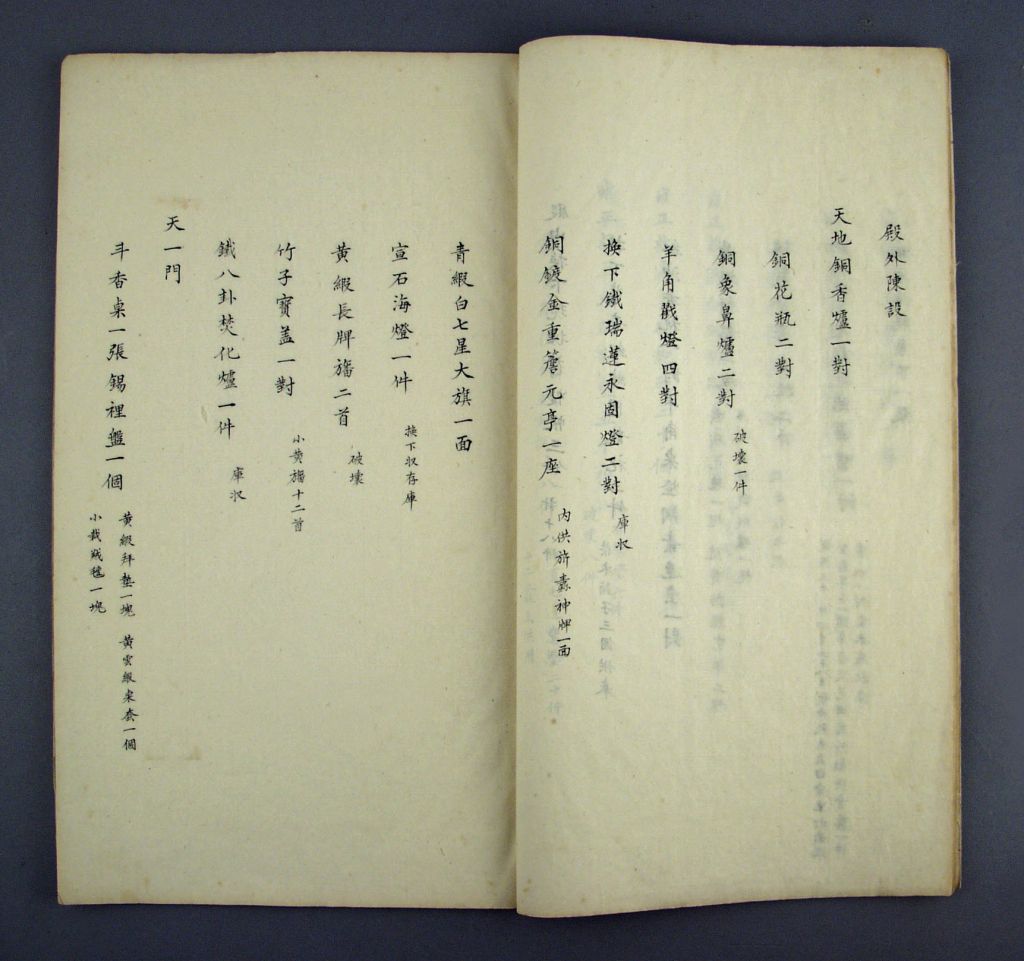 殿外陳設
天地銅香爐一對
銅花瓶二對
銅象鼻爐二對
破壞一件
羊角戳燈四對
換下鐵瑞蓮永固燈二對
庫収
銅鍍金重簷元亭一座
內供旂纛神牌一面
青緞白七星大旗一面
宣石海燈一件
換下収存庫
黃緞長牌旛二首
破壞
竹子寶盖一對
小黃旛十二首
鐵八卦焚化爐一件
庫収
天一門
斗香桌一張錫裡盤一個
黃緞拜墊一塊 黃雲緞桌套一個
小裁絨毯一塊